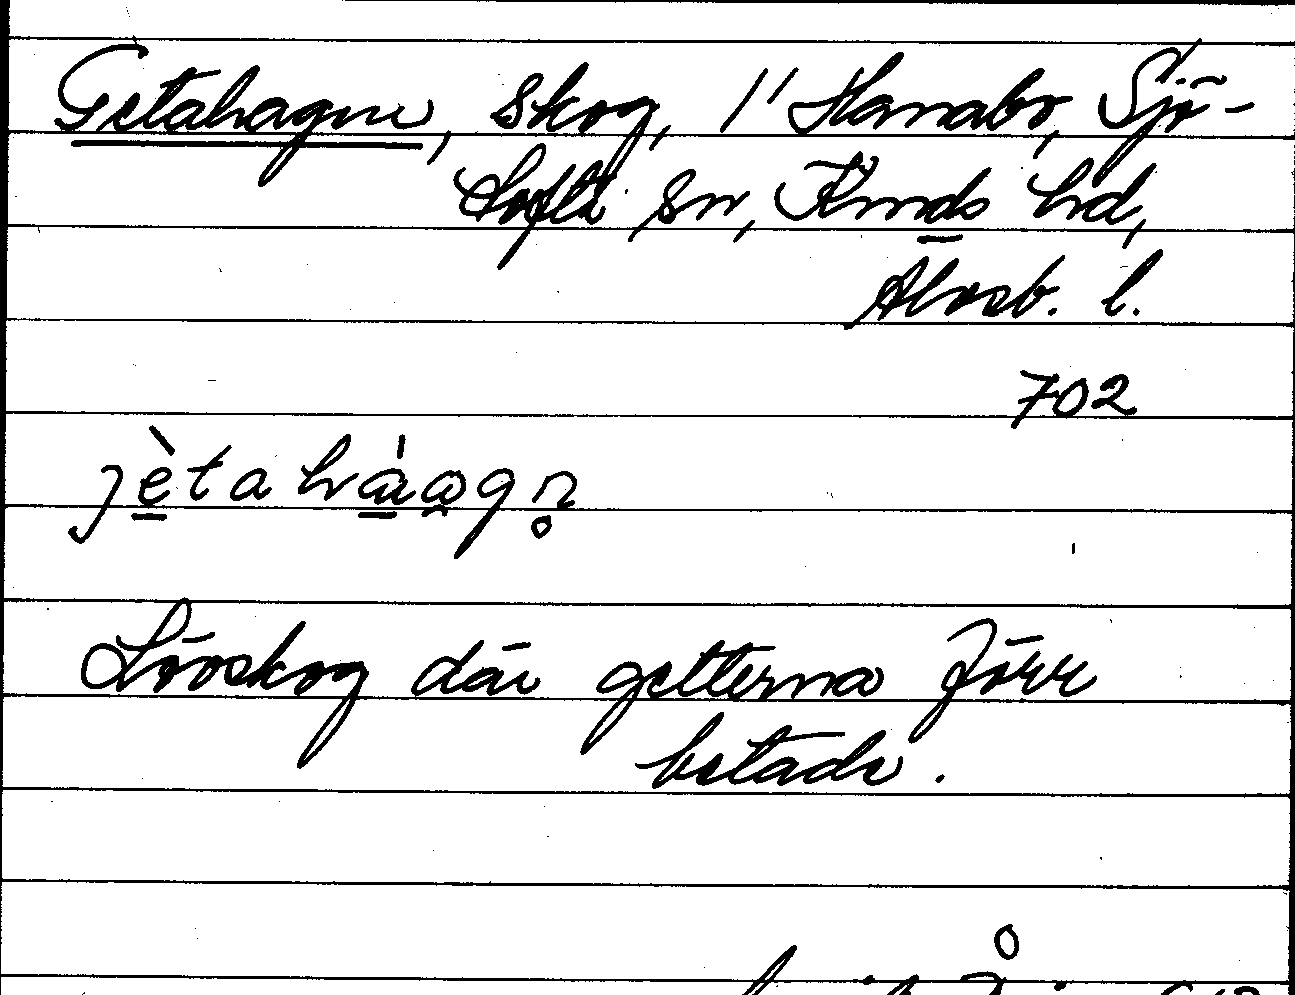 Getahagen, skog, 1' Hanabo, Sjö-
tofta sn, Kinds hd,
Älvsb. l.
702
jètahàagn̥
Lövskog där getterna förr
betade.